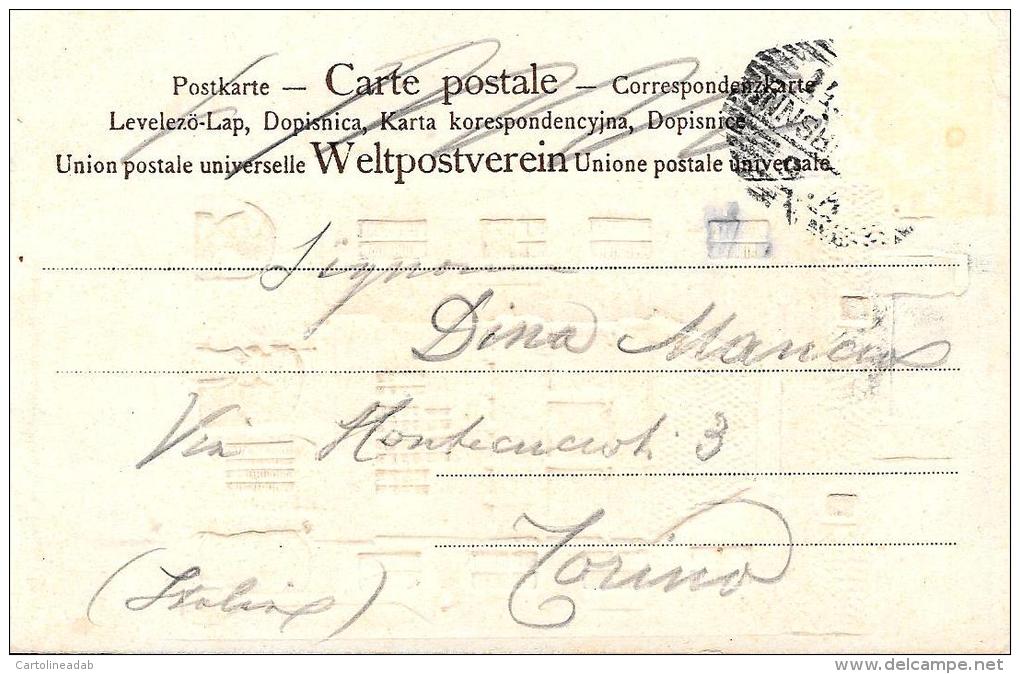 Postkarte — Carte postale — Correspondenzkarte
Levelező-Lap, Dopisnica, Karta korespondencyjna, Dopisnice
Union postale universelle Weltpostverein Unione postale universale
Dina
Via Montecuccoli 3
Torino
(Italia)
Cartolineadab
www.delcampe.net